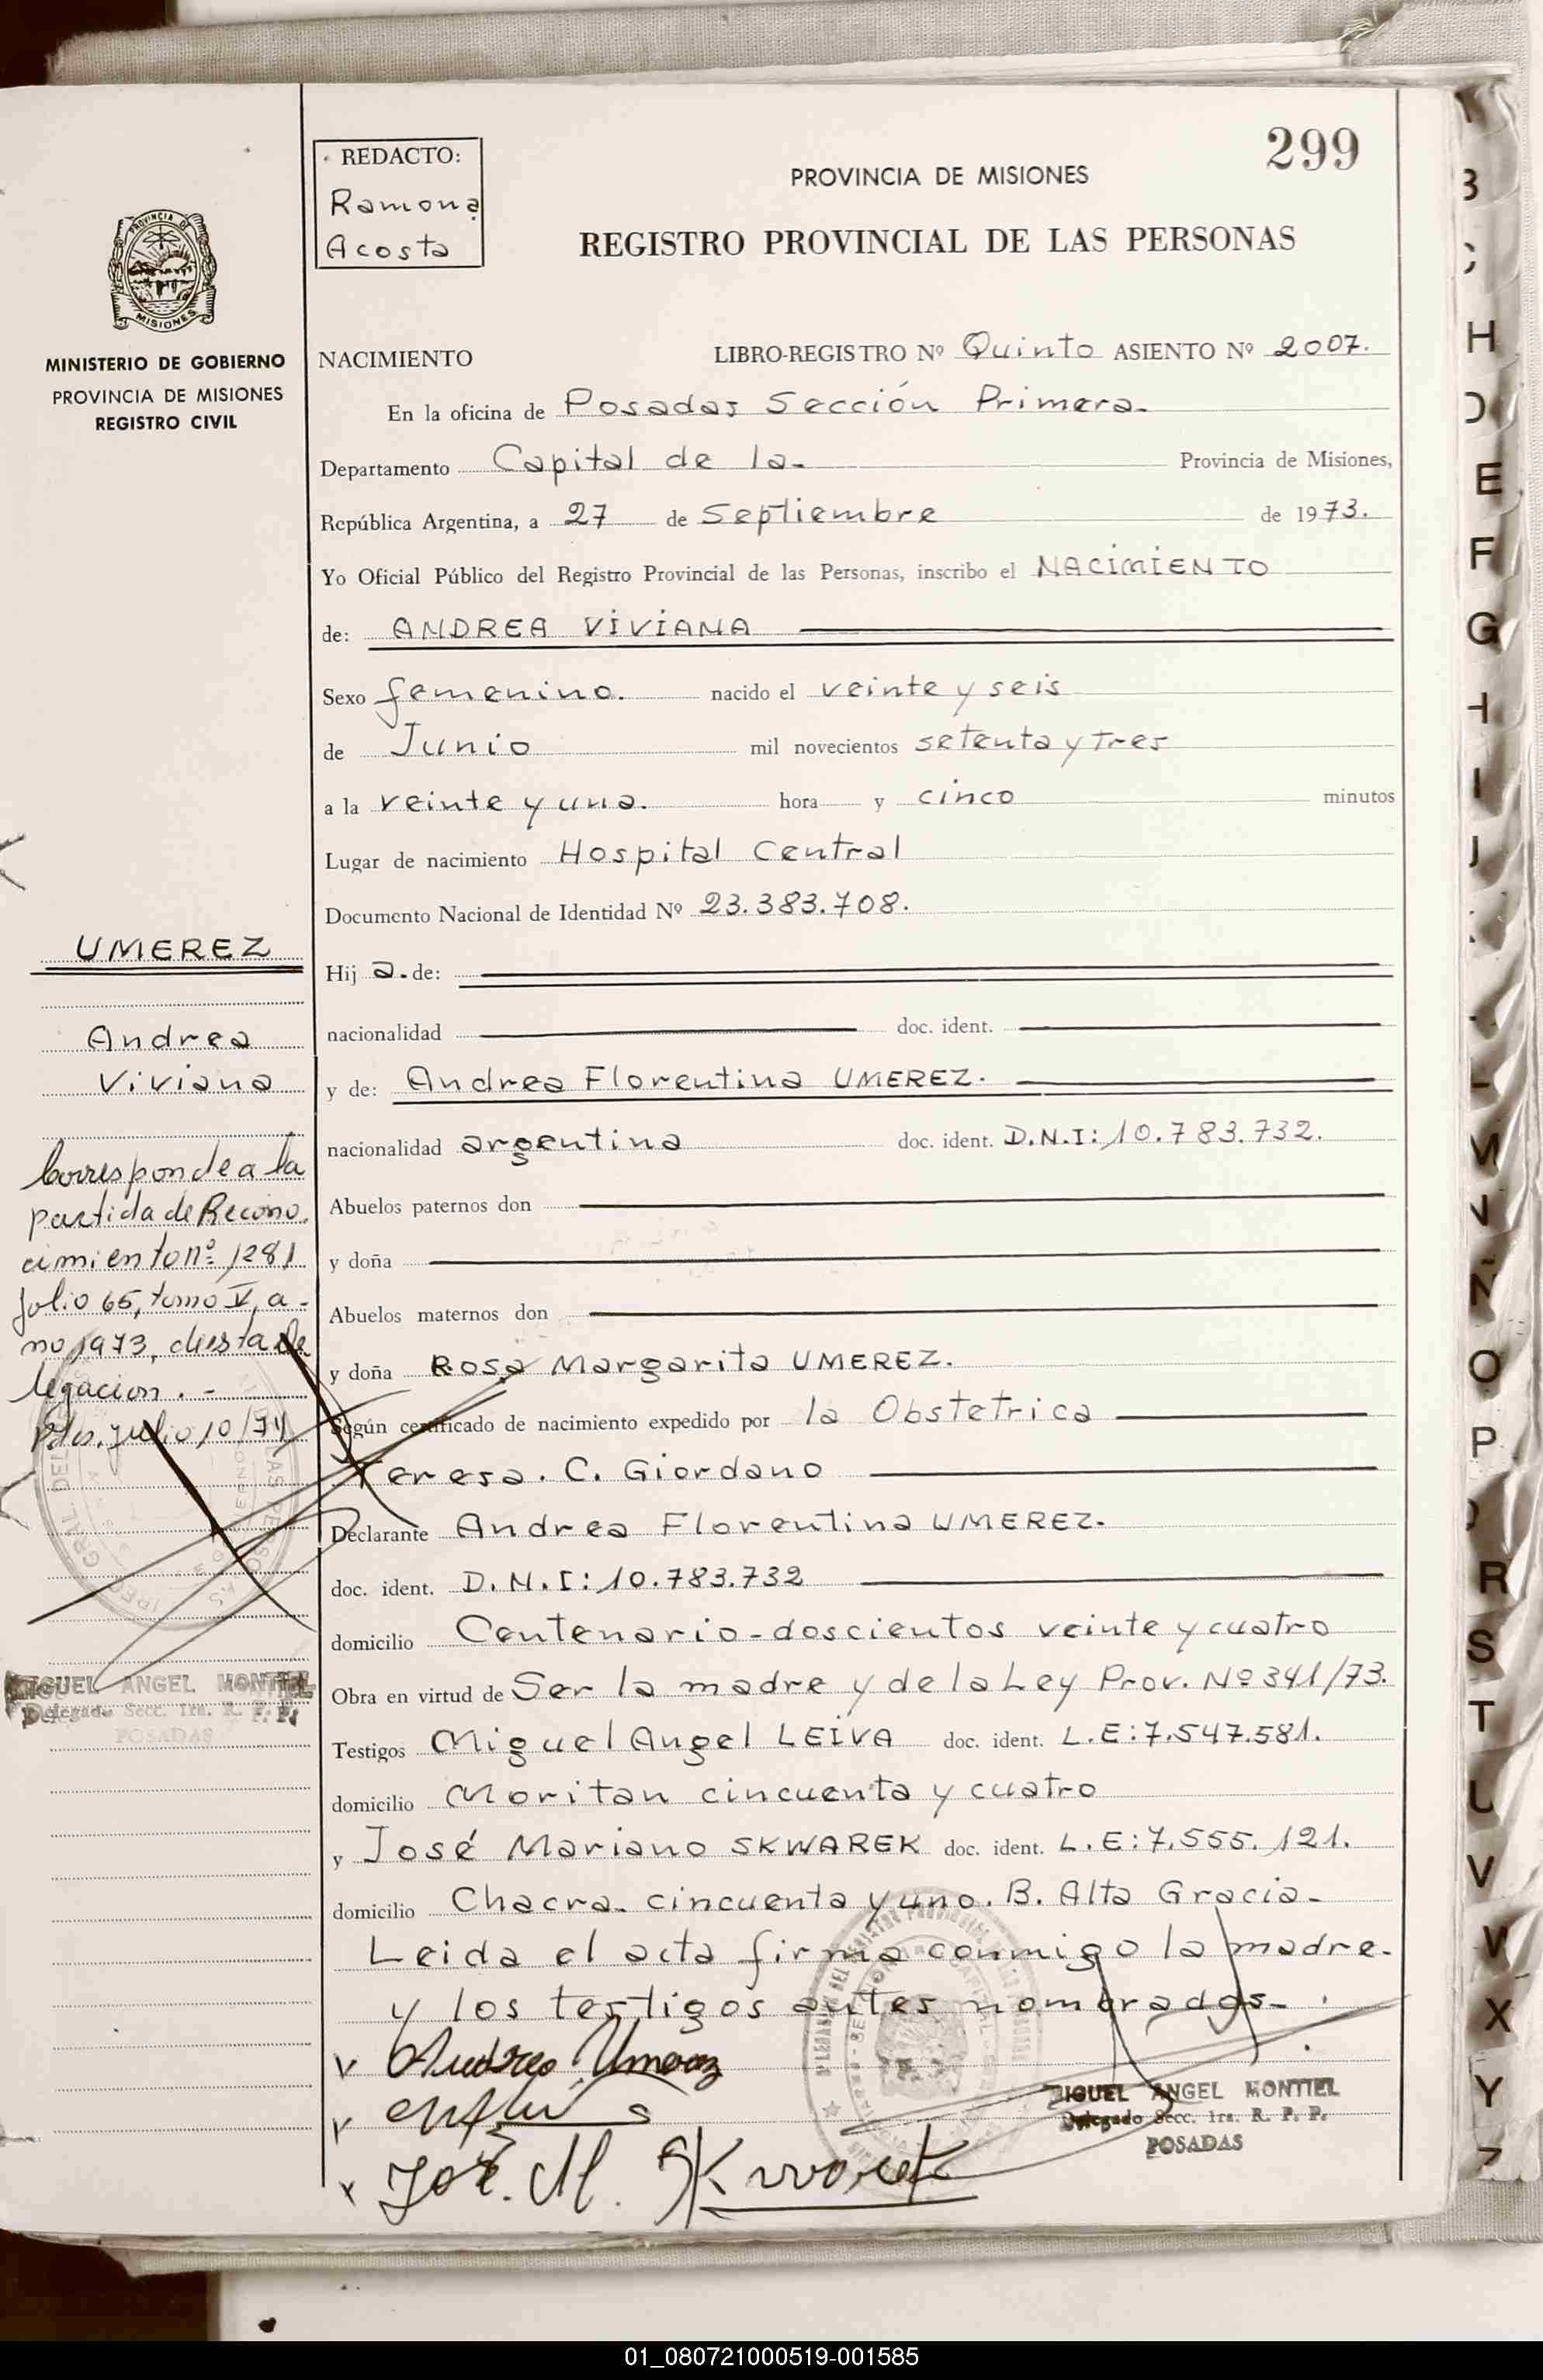 299
REDACTO:
Ramona
Acosta
PROVINCIA DE MISIONES
REGISTRO PROVINCIAL DE LAS PERSONAS
MISIONES
MINISTERIO DE GOBIERNO
PROVINCIA DE MISIONES
REGISTRO CIVIL
NACIMIENTO LIBRO-REGISTRO Nº Quinto ASIENTO Nº 2007.
En la oficina de Posadas Sección Primera.
Departamento Capital de la- Provincia de Misiones,
República Argentina, a 27 de Septiembre de 1973.
Yo Oficial Público del Registro Provincial de las Personas, inscribo el NACIMIENTO
de: ANDREA VIVIANA
Sexo femenino. nacido el veinte y seis
de Junio mil novecientos setenta y tres
a la veinte y una. hora y cinco minutos
Lugar de nacimiento Hospital Central
Documento Nacional de Identidad Nº 23.383.708.
Hij a. de:
nacionalidad doc. ident.
y de: Andrea Florentina UMEREZ.
nacionalidad argentina doc. ident. D.N.I: 10.783.732.
Abuelos paternos don
y doña
Abuelos maternos don
y doña Rosa Margarita UMEREZ.
Según certificado de nacimiento expedido por la Obstetrica
Teresa. C. Giordano
Declarante Andrea Florentina UMEREZ.
doc. ident. D.N.I: 10.783.732
domicilio Centenario-doscientos veinte y cuatro
Obra en virtud de Ser la madre y de la Ley Prov. Nº 341/73.
Testigos Miguel Angel LEIVA doc. ident. L.E: 7.547.581.
domicilio Moritan cincuenta y cuatro
y José Mariano SKWAREK doc. ident. L.E: 7.555.121.
domicilio Chacra. cincuenta y uno. B. Alta Gracia-
Leida el acta firma conmigo la madre-
y los testigos antes nombrados-
Andrea Umerez
José. M. SKwarek
MIGUEL ANGEL MONTIEL
Delegado Secc. 1ra. R. P. P.
POSADAS
UMEREZ
Andrea
Viviana
Corresponde a la
partida de Recono.
cimiento nº 1281
folio 65, tomo V, a-
no 1973, de esta de
legacion. -
Pdas. Julio 10/74
MIGUEL ANGEL MONTIEL
Delegado Secc. 1ra. R. P. P.
POSADAS
B
C
H
D
E
F
G
H
I
J
L
M
N
Ñ
O
P
R
S
T
U
V
W
X
Y
Z
01_080721000519-001585